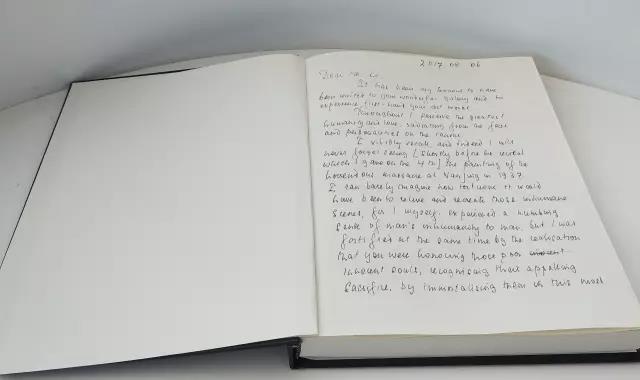 2017 08 06
Dear Mr.
It has been my honour to have
been invited to your wonderful gallery and to
experience first-hand your art works
Throughout I perceive the greatest
humanity and love, radiating from the faces
and personalities on the canvas
I vividly recall and indeed I will
never forget seeing [shortly before the recital
which I gave on the 4th] the painting of the
horrendous massacre at Nanjing in 1937
I can barely imagine how it would
have been to relive and recreate those inhumane
scenes, for I myself experienced a numbing
sense of man's inhumanity to man, but I was
fortified at the same time by the realisation
that you were honouring those poor
innocent souls, recognising their appalling
sacrifice, by immortalising them in this most